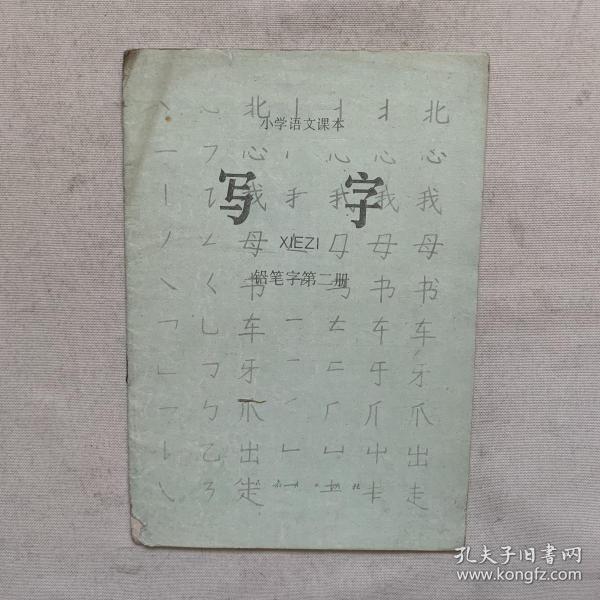 小学语文课本
写字
XIEZI
铅笔字第二册
北 北
心 心 心 心
我 我 我 我
母 母 母
书 书 书
车 车 车
牙 牙
爪 爪
出 出
走 走
孔夫子旧书网
www.kongfz.com